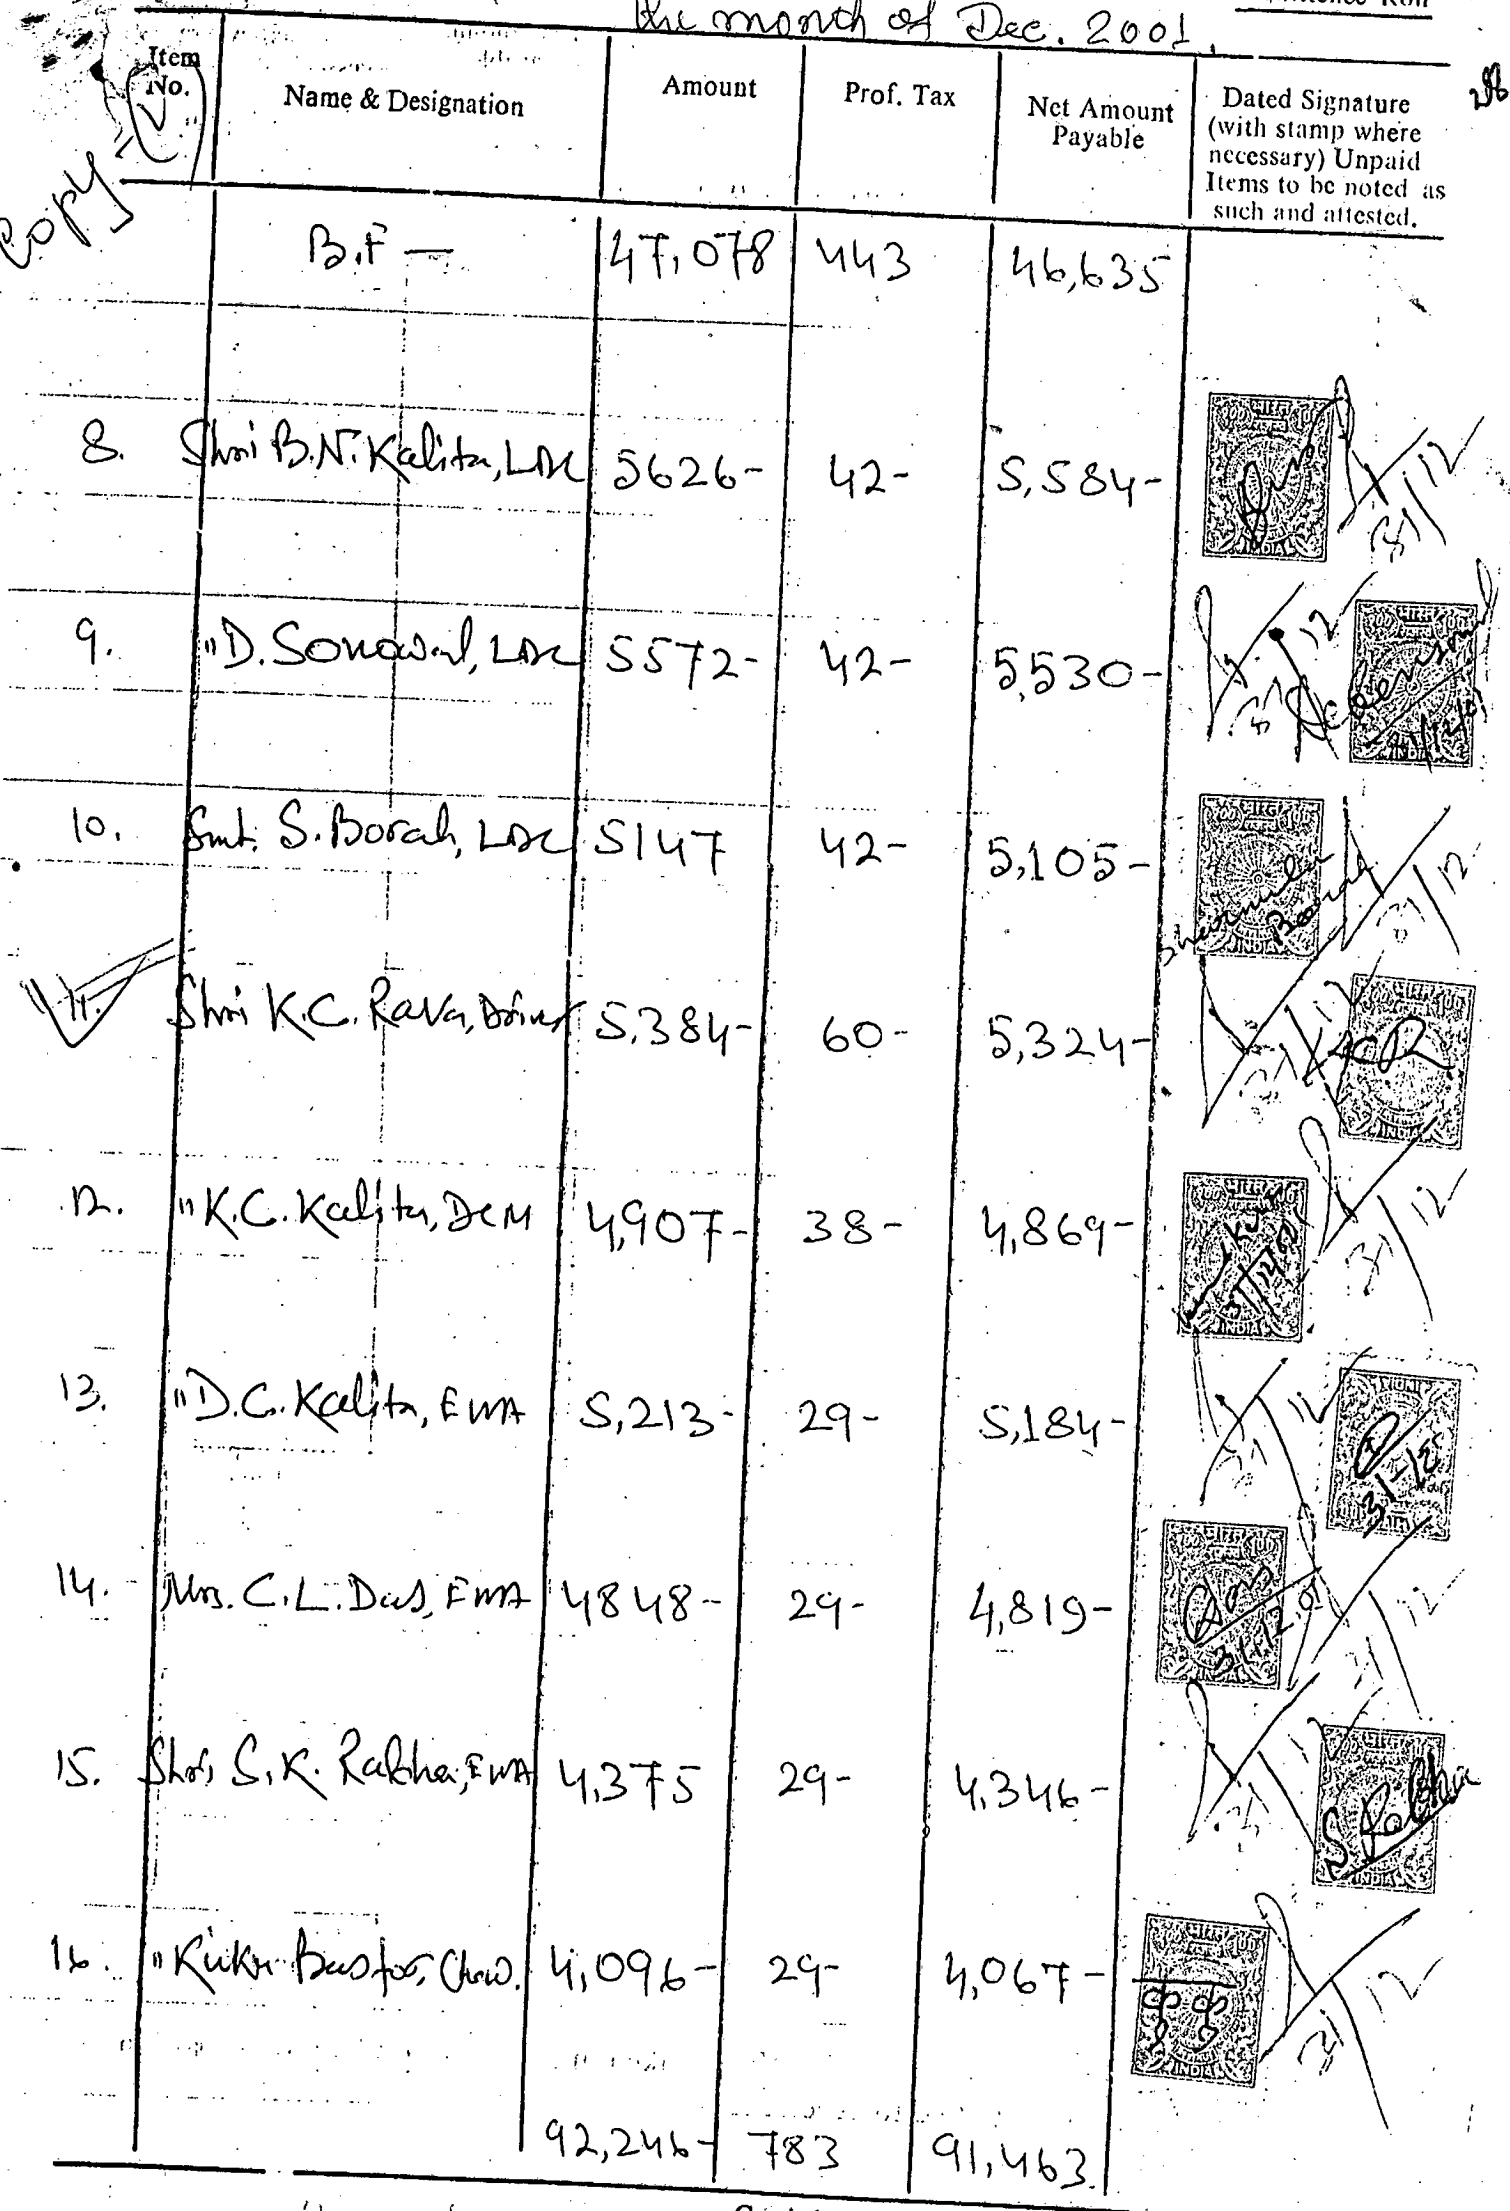 the month of Dec. 2001.
Item No. Name & Designation Amount Prof. Tax Net Amount Payable Dated Signature (with stamp where necessary) Unpaid Items to be noted as such and attested.
Copy
B.F — 47,078 443 46,635
8. Shri B.N. Kalita, LDC 5626- 42- 5,584- 31/12
9. " D. Sonowal, LDC 5572- 42- 5,530- 31/12
10. Smt. S. Borah, LDC 5147 42- 5,105- 31/12
11. Shri K.C. Rava, Driver 5,384- 60- 5,324- 31/12
12. " K.C. Kalita, DCM 4,907- 38- 4,869- 31/12
13. " D.C. Kalita, EMA 5,213- 29- 5,184- 31/12
14. Mrs. C.L. Das, EMA 4848- 29- 4,819- Das 31.12.01 31/12
15. Shri S.K. Rabha, EMA 4,375 29- 4,346- 31/12 S Rabha
16. " Chow. 4,096- 29- 4,067- 31/12
92,246- 783 91,463